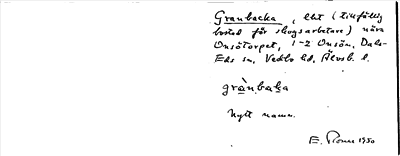 Granbacka, lht (tillfällig
bostad för skogsarbetare) nära
Onsötorpet, 1-2 Onsön, Dals-
Eds sn, Vedbo hd, Älvsb. l.
grànbaka
Nytt namn.
E. 1930